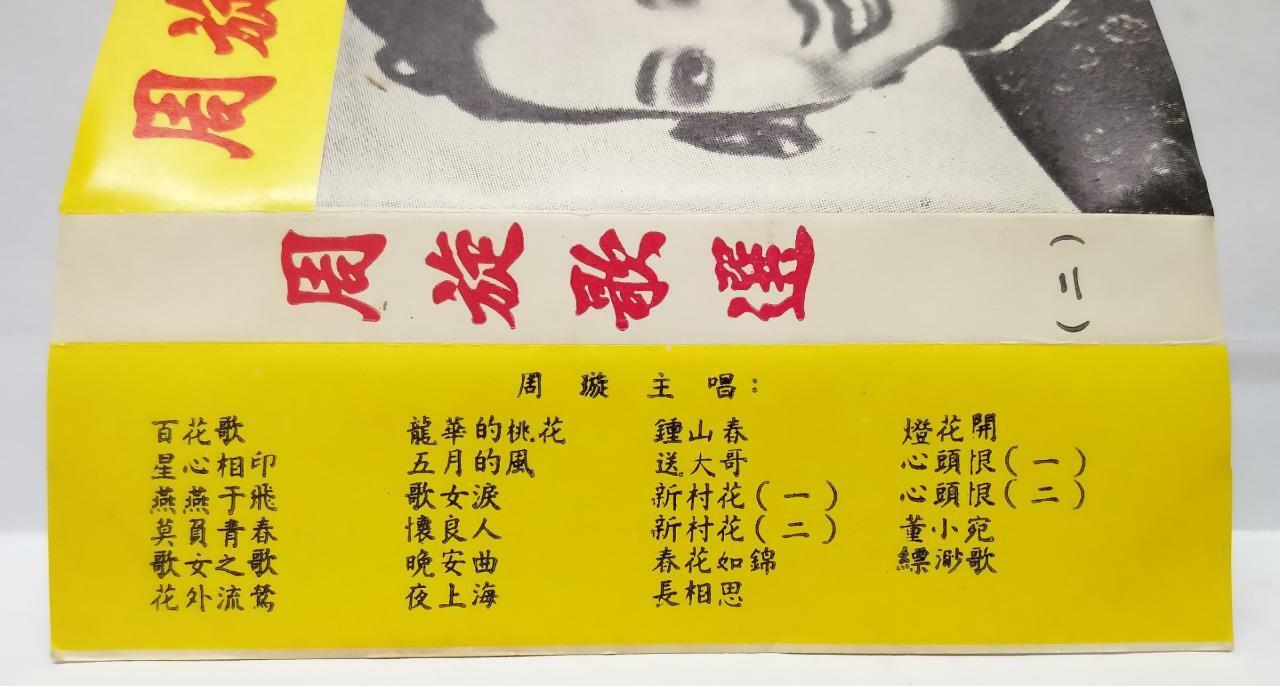 周旋
周旋歌選
(二)
周璇主唱:
百花歌
星心相印
燕燕于飛
莫負青春
歌女之歌
花外流鶯
龍華的桃花
五月的風
歌女淚
懷良人
晚安曲
夜上海
鍾山春
送大哥
新村花(一)
新村花(二)
春花如錦
長相思
燈花開
心頭恨(一)
心頭恨(二)
董小宛
縹渺歌